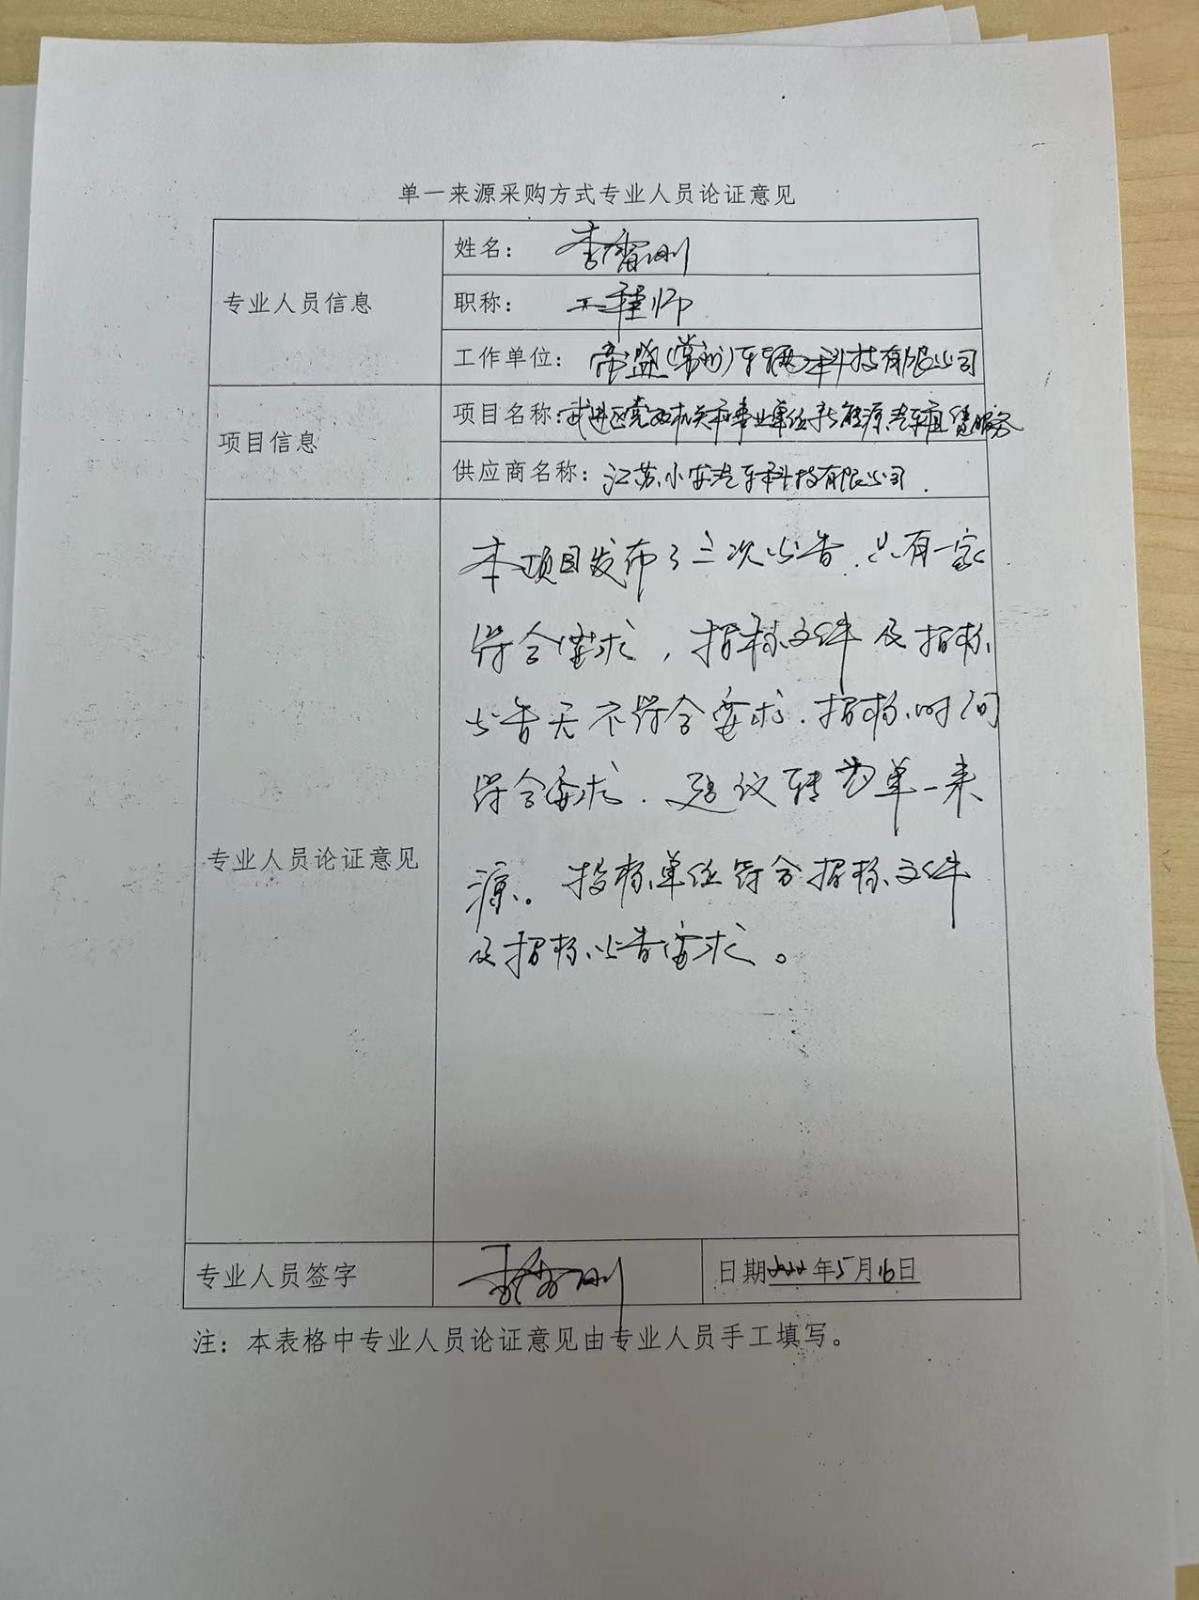 单一来源采购方式专业人员论证意见
专业人员信息
姓名: 李雷刚
职称: 工程师
工作单位: 帝盛(常州)车辆科技有限公司
项目信息
项目名称: 武进区党政机关和事业单位新能源汽车租赁服务
供应商名称: 江苏小安汽车科技有限公司.
专业人员论证意见
本项目发布了三次公告.只有一家
符合需求,招标文件及招标
公告无不符合要求.招标时间
符合要求.建议转为单一来
源。投标单位符合招标文件
及招标公告需求。
专业人员签字
刚
日期 年5月16日
注: 本表格中专业人员论证意见由专业人员手工填写。